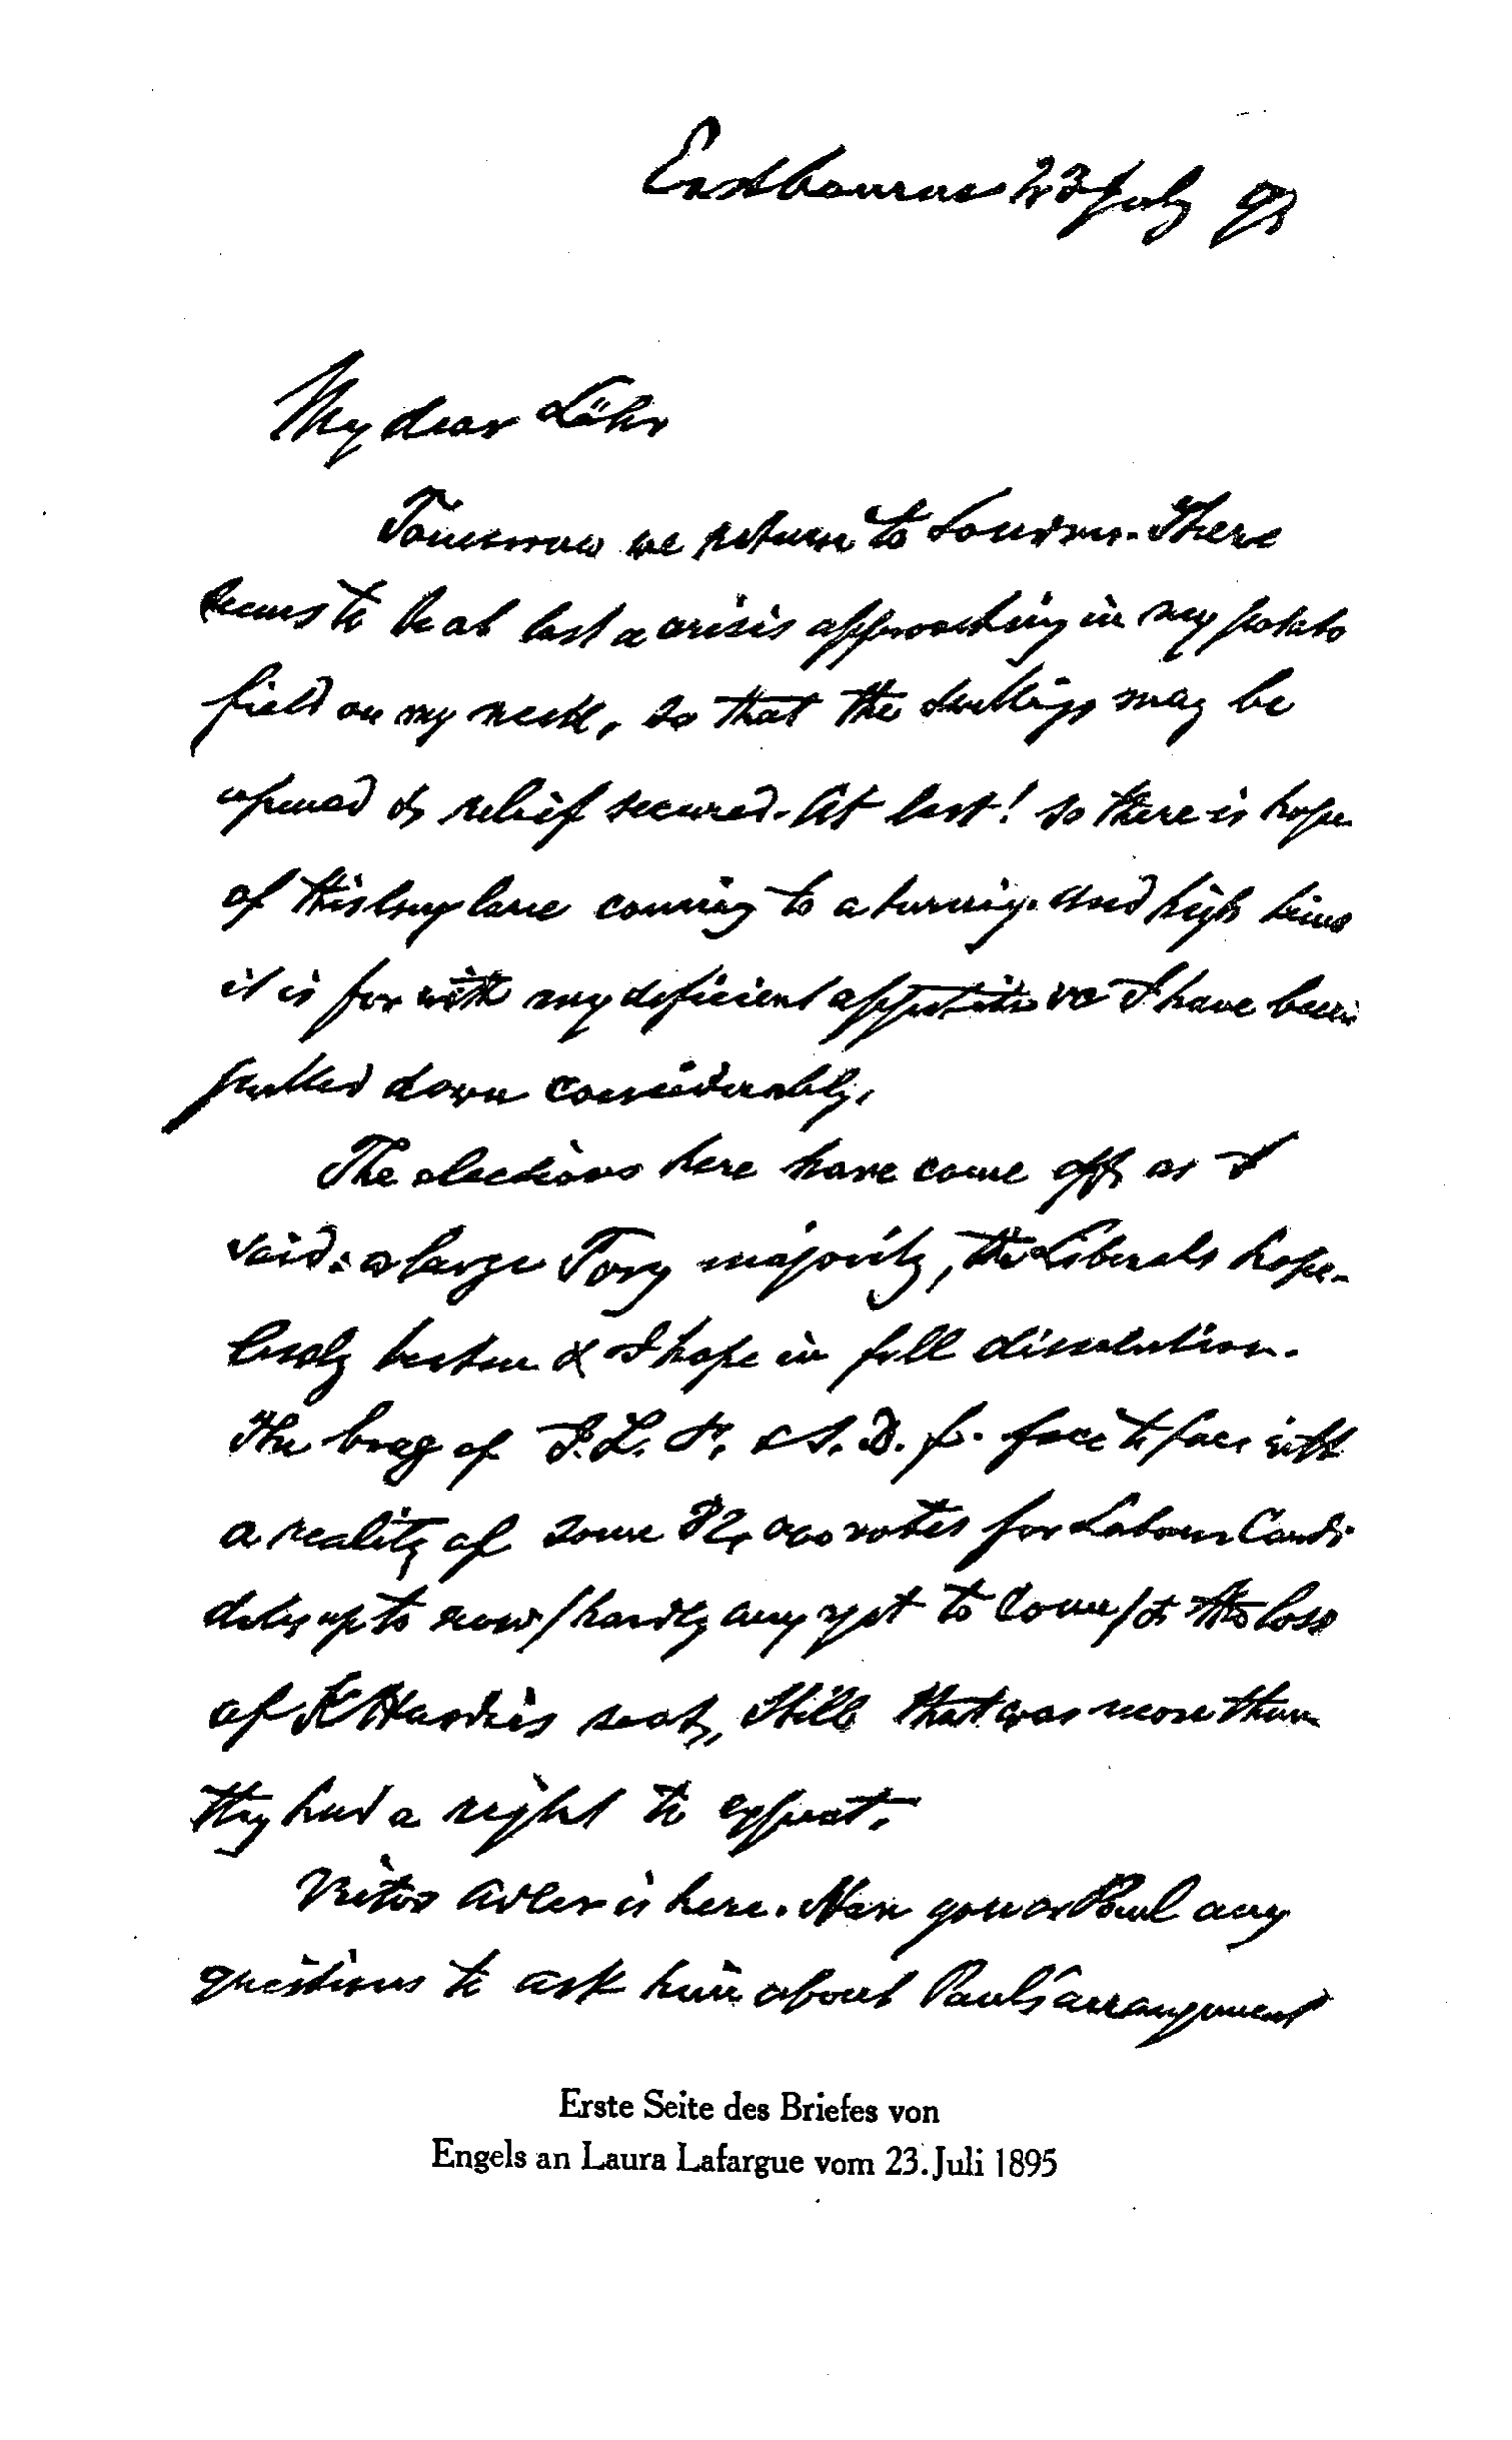 Eastbourne 23 July 95
My dear Löhr
Tomorrow we return to London. There
seems to be at last a crisis approaching in my potato
field on my neck, so that the swellings may be
opened & relief secured. At last! so there is hope
of this long lane coming to a turning. And high time
it is for with my deficient appetite &c I have been
pulled down considerably.
The elections here have come off as I
said: a large Tory majority, the Liberals hope-
lessly beaten & I hope in full dissolution.
The brag of I.L.P. & S.D.F. face to face with
a reality of some 82,000 votes for Labour Candi
dates up to now (hardly any yet to come) & the loss
of K Hardie's seat. Still that was more than
they had a right to expect.
Victor Adler is here. Have you or Paul any
questions to ask him about Paul's arrangement
Erste Seite des Briefes von
Engels an Laura Lafargue vom 23. Juli 1895